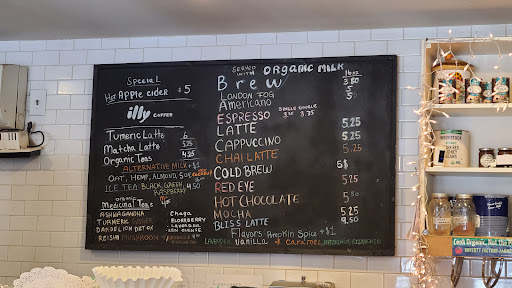 Special
Hot Apple cider $5
illy COFFEE
Turmeric Latte 6
Matcha Latte 5.25
Organic Teas 4.25
ALTERNATIVE MILK +$1
OAT, HEMP, ALMOND, SOY, COCONUT
ICE TEA BLACK, GREEN, 4.50
RASPBERRY
organic
Medicinal Teas
ASHWAGANDHA
TURMERIC GINGER
DANDELION DETOX
REISHI MUSHROOM
Chaga
ELDERBERRY
LAVENDER
SERVED WITH ORGANIC MILK
16oz
Brew 3.50
LONDON FOG 5
Americano 5
SINGLE DOUBLE
ESPRESSO 3.50 3.75
LATTE 5.25
CAPPUCCINO 5.25
CHAI LATTE 5.25
COLD BREW 5$
RED EYE 5.25
HOT CHOCOLATE 5.
MOCHA 5.25
BLISS LATTE 9.50
Flavors Pumpkin Spice +$1
LAVENDER Vanilla + CARAMEL HAZELNUT